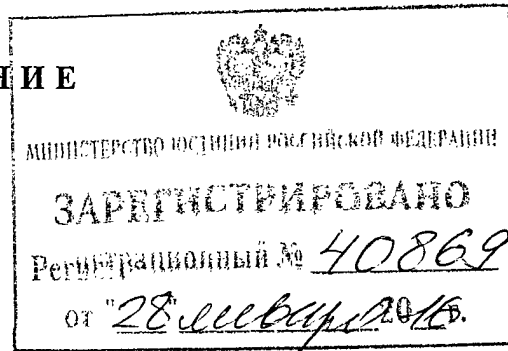 НИЕ
МИНИСТЕРСТВО ЮСТИЦИИ РОССИЙСКОЙ ФЕДЕРАЦИИ
ЗАРЕГИСТРИРОВАНО
Регистрационный № 40869
от "28" января 2016 г.